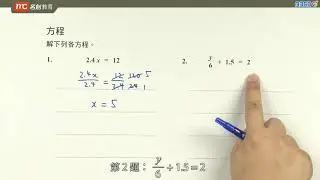 名創教育
方程
解下列各方程。
1. 2.4x = 12
2. y/6 + 1.5 = 2
2.4x/2.4 = 12/2.4 120/24 5/1
x = 5
第2題： y/6 + 1.5 = 2